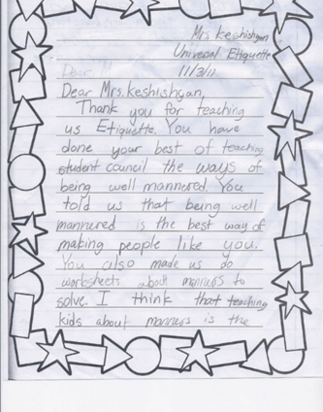 Mrs keshishyan
Universal Etiquette
11/3/11
Dear Mrs. keshishyan,
Thank you for teaching
us Etiquette. You have
done your best of teaching
student council the ways of
being well mannered. You
told us that being well
mannered is the best way of
making people like you.
You also made us do
worksheets about manners to
solve. I think that teaching
kids about manners is the